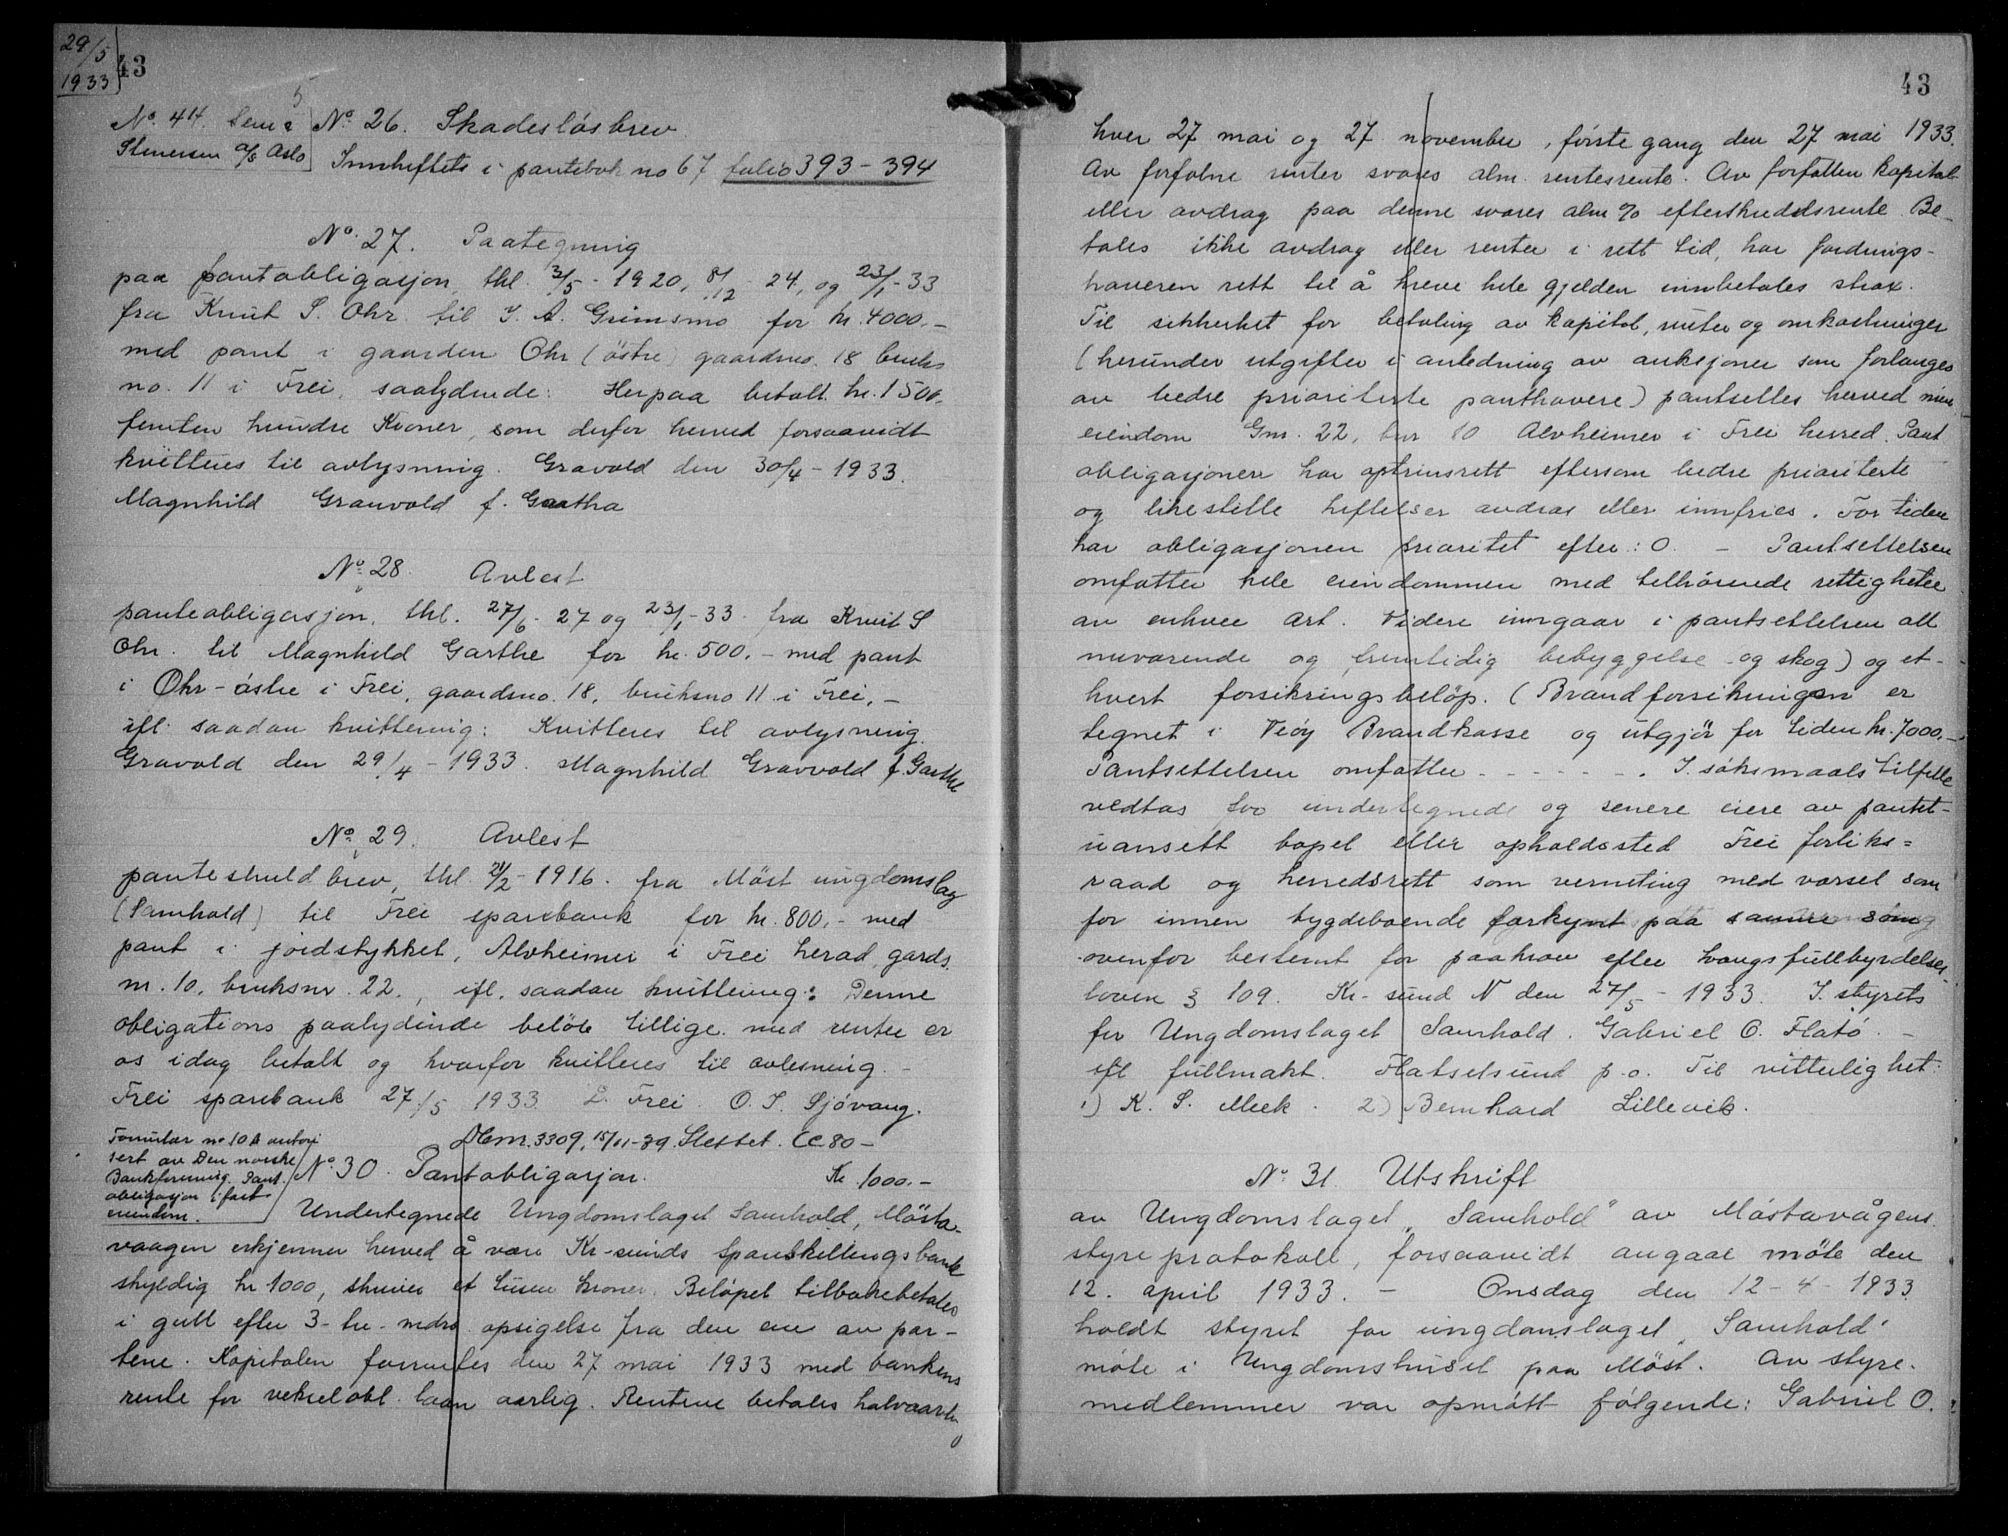 29/5
1933
43
No. 44. Sem &
Stenersen A/S Oslo
No. 26. Skadeslösbrev
Innheftets i pantebok no 67 folio 393 - 394
No. 27. Paategning
paa pantobligasjon, thl. 3/5 - 1920, 8/12 24, og 23/1 - 33
fra Knut S. Ohr til I. A. Grimsmo for kr. 4000.-
med pant i gaarden Ohr (östre) gaardsno. 18 bruks
no. 11 i Frei, saalydende: Herpaa betalt kr. 1500.-
femten hundre Kroner, som derfor herved forsaavidt
kvitteres til avlysning. Gravold den 30/4 - 1933.
Magnhild Gravold f. Gartha
No. 28. Avlest
panteobligasjon, thl. 27/6 - 27 og 23/1 - 33 fra Knut S
Ohr. til Magnhild Garthe for kr. 500.- med pant
i Ohr - östre i Frei, gaardsno. 18, bruksno 11 i Frei, -
ifl. saadan kvittering: Kvitteres til avlysning.
Gravold den 29/4 - 1933. Magnhild Gravvold f. Garthe
No. 29. Avlest
panteskuldbrev, thl. 21/2 - 1916. fra Möst ungdomslag
(Samhold) til Frei sparebank for kr. 800,- med
pant i jordstykket, Alvheimer i Frei herad, gards.
nr. 10, bruksnr. 22., ifl. saadan kvittering: Denne
obligations paalydende belöb tillige med renter er
os idag betalt og hvorfor kvitteres til avlesning. -
Frei sparebank 27/5 1933 L. Frei. O. I. Sjövang.
Dbm. 3309, 15/11-39. Slettet. CC 80 -
Formular no 10 A autori
sert av Den norske
Bankforening. Pant.
obligasjon i fast
eiendom.
No. 30. Pantobligasjon. Kr 1000.-
Undertegnede Ungdomslaget Samhold, Mösta-
vaagen erkjenner herved å være Kr-sunds Spareskillingsbank
skyldig kr 1000, skriver et tusen kroner. Belöpet tilbakebetales
i gull efter 3 - tre - mdrs opsigelse fra den ene av par-
tene. Kapitalen forrentes den 27 mai 1933 med bankens
rente for vekselobl. laan aarlig. Rentene betales halvaarlig
43
hver 27 mai og 27 november, förste gang den 27 mai 1933.
Av forfalne renter svares alm. rentesrente. Av forfallen kapital
eller avdrag paa denne svares alm % efterskuddsrente. Be-
tales ikke avdrag eller renter i rett tid, har fordrings-
haveren rett til å kreve hele gjelden innbetales strax.
Til sikkerhet for betaling av kapital, renter og omkostninger
(herunder utgifter i anledning av auksjoner som forlanges
av bedre prioriterte panthavere) pantsettes herved min
eiendom Gnr. 22, bnr 10 Alvheimer i Frei herred. Pant
obligasjonen har optrinsrett eftersom bedre prioriterte
og likestilte heftelser avdras eller innfries. For tiden
har obligasjonen prioritet efter: O. - Pantsettelsen
omfatter hele eiendommen med tilhörende rettigheter
av enhver art. Videre inngaar i pantsettelsen all
nuværende og fremtidig bebyggelse og skog) og et-
hvert forsikringsbelöp. (Brandforsikringen er
tegnet i Veöy Brandkasse og utgjör for tiden kr. 7000.-
Pantsettelsen omfatter - - - - - - . I söksmaals tilfelle
vedtas for undertegnede og senere eiere av pantet -
uansett bopel eller opholdssted Frei forliks=
raad og herredsrett som verneting med varsel som
for innen bygdeboende forkynt paa samme
ovenfor bestemt for paakrav efter tvangsfullbyrdelses
loven § 109. Kr-sund N den 27/5 - 1933. I. styrets
for Ungdomslaget Samhold. Gabriel O. Flatö. -
ifl fullmakt. Flatselsund p.o. Til vitterlighet:
1) K. S. Meek. 2) Bernhard Lillevik.
No. 31. Utskrift
av Ungdomslaget "Samhold" av Möstavågens
styreprotokoll, forsaavidt angaar möte den
12. april 1933. - Onsdag den 12 - 4 - 1933
holdt styret for ungdomslaget "Samhold"
möte i Ungdomshuset paa Möst. Av styre-
medlemmer var opmött fölgende: Gabriel O.